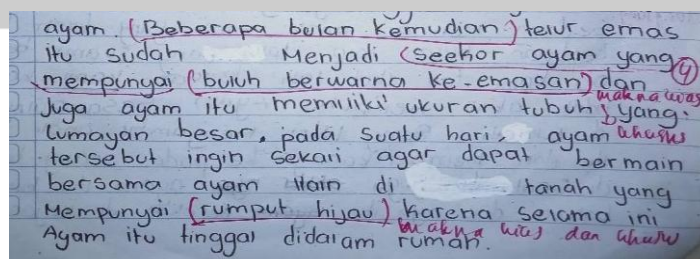 ayam. (Beberapa bulan kemudian) telur emas
itu sudah Menjadi (seekor ayam yang
4
mempunyai (buluh berwarna ke-emasan) dan
makna luas
Juga ayam itu memiliki ukuran tubuh yang
khusus
lumayan besar. pada suatu hari, ayam
tersebut ingin sekali agar dapat bermain
bersama ayam lain di tanah yang
Mempunyai (rumput hijau) karena selama ini
makna luas dan khusus
Ayam itu tinggal didalam rumah.